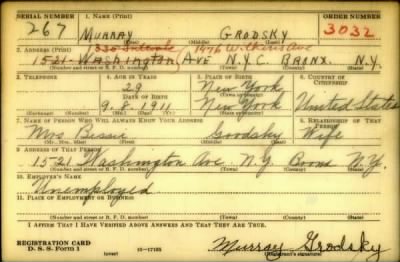 SERIAL NUMBER 1. NAME (Print) ORDER NUMBER
267 MURRAY GRODSKY 3032
(First) (Middle) (Last)
2. ADDRESS (Print) 1476
1521 WASHINGTON AVE N.Y.C. BRONX. N.Y.
(Number and street or R. F. D. number) (Town) (County) (State)
3. TELEPHONE 4. AGE IN YEARS 5. PLACE OF BIRTH 6. COUNTRY OF CITIZENSHIP
29 New York
DATE OF BIRTH (Town or county)
9. 8. 1911 New York United States
(Exchange) (Number) (Mo.) (Day) (Yr.) (State or country)
7. NAME OF PERSON WHO WILL ALWAYS KNOW YOUR ADDRESS 8. RELATIONSHIP OF THAT PERSON
Mrs Bessie Grodsky Wife
(Mr., Mrs., Miss) (First) (Middle) (Last)
9. ADDRESS OF THAT PERSON
1521 Washington Ave. N.Y. Bronx N.Y.
(Number and street or R. F. D. number) (Town) (County) (State)
10. EMPLOYER'S NAME
Unemployed
11. PLACE OF EMPLOYMENT OR BUSINESS
(Number and street or R. F. D. number) (Town) (County) (State)
I AFFIRM THAT I HAVE VERIFIED ABOVE ANSWERS AND THAT THEY ARE TRUE.
REGISTRATION CARD
D. S. S. Form 1 (over) 16-17105 Murray Grodsky
(Registrant's signature)